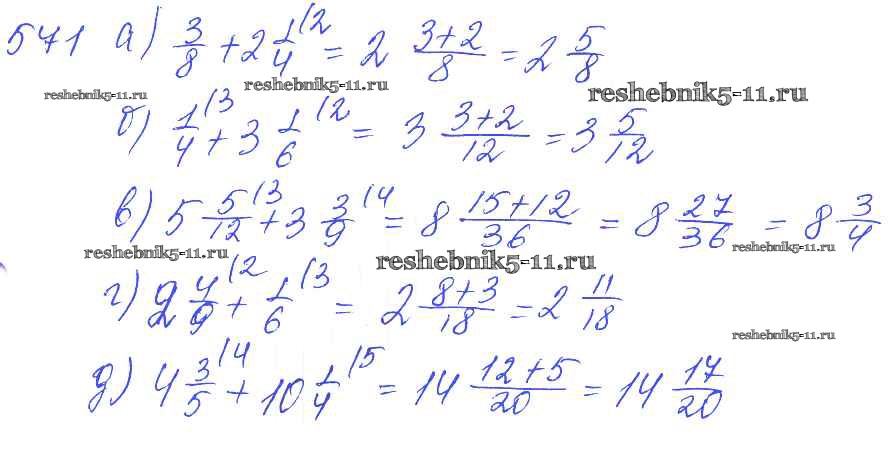 571 а) 3/8 + 2 1/4 (2 = 2 (3+2)/8 = 2 5/8
reshebnik5-11.ru reshebnik5-11.ru reshebnik5-11.ru
б) 1/4 (3 + 3 1/6 (2 = 3 (3+2)/12 = 3 5/12
в) 5 5/12 (3 + 3 3/9 (4 = 8 (15+12)/36 = 8 27/36 = 8 3/4
reshebnik5-11.ru reshebnik5-11.ru reshebnik5-11.ru
г) 2 4/9 (2 + 1/6 (3 = 2 (8+3)/18 = 2 11/18
reshebnik5-11.ru
д) 4 3/5 (4 + 10 1/4 (5 = 14 (12+5)/20 = 14 17/20